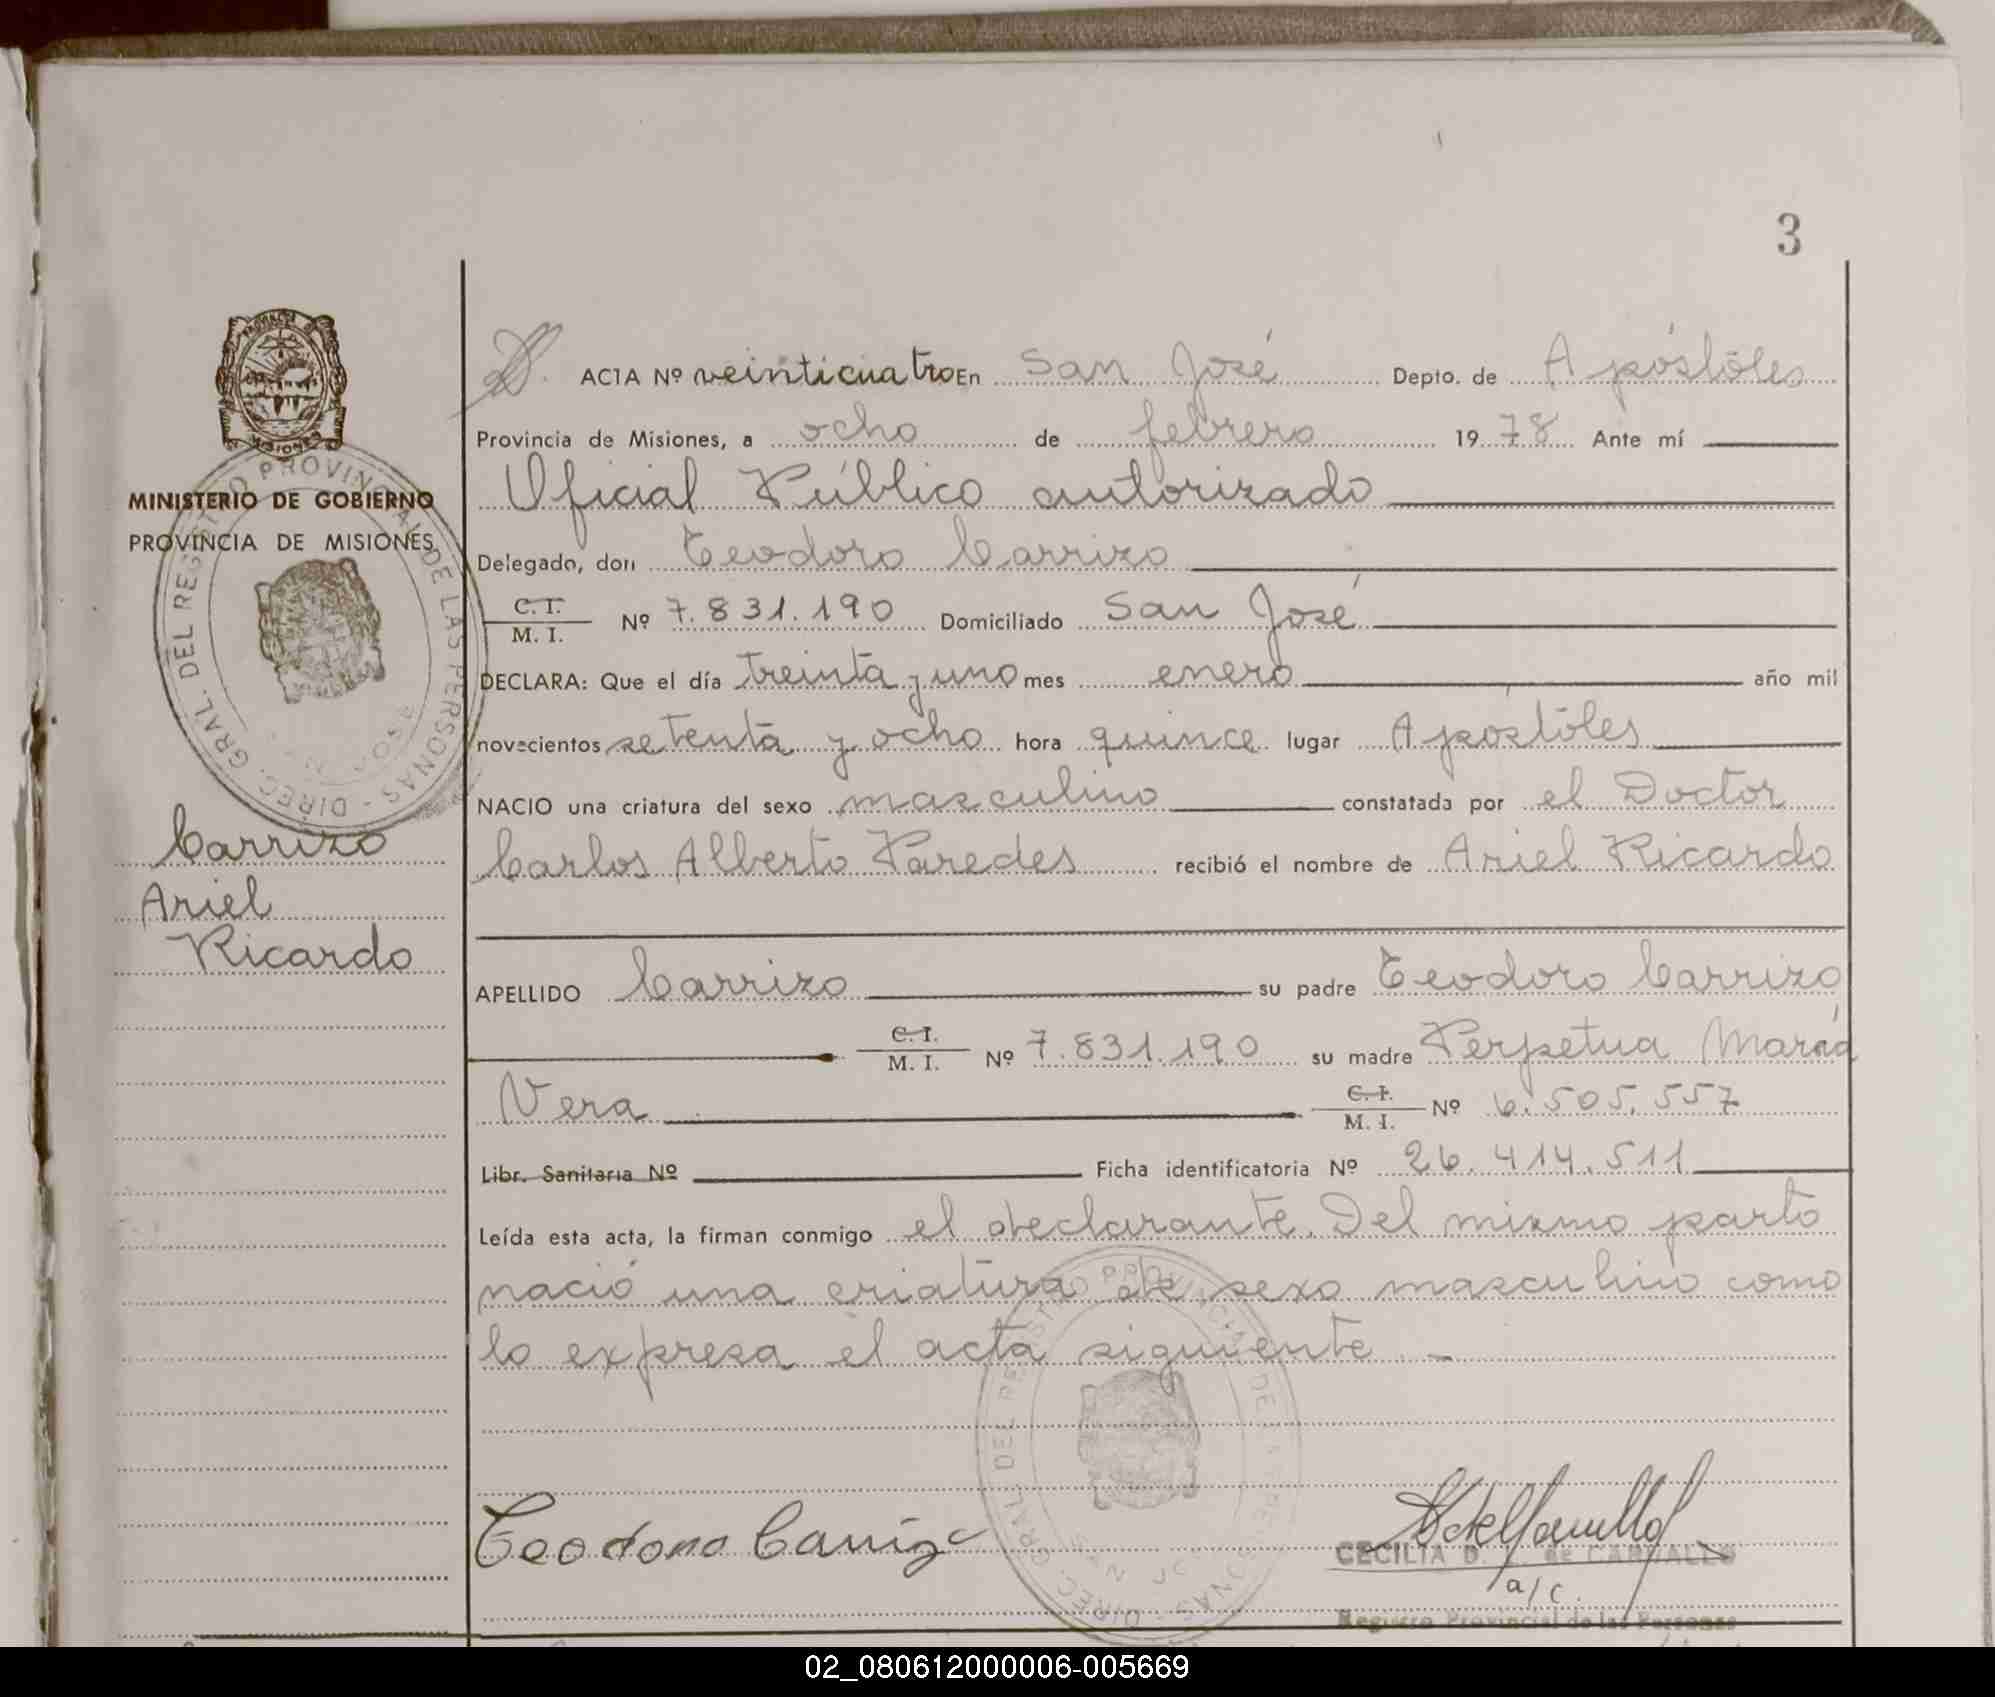 3
ACTA Nº veinticuatro En San José Depto. de Apóstóles
Provincia de Misiones, a ocho de febrero 1978 Ante mí
Oficial Público autorizado
Delegado, don Teodoro Carrizo
C. I. / M. I. Nº 7.831.190 Domiciliado San José
DECLARA: Que el día treinta y uno mes enero año mil
novecientos setenta y ocho hora quince lugar Apóstóles
NACIO una criatura del sexo masculino constatada por el Doctor
Carlos Alberto Paredes recibió el nombre de Ariel Ricardo
APELLIDO Carrizo su padre Teodoro Carrizo
C. I. / M. I. Nº 7.831.190 su madre Perpetua
Vera C. I. / M. I. Nº 6.505.557
Libr. Sanitaria Nº Ficha identificatoria Nº 26.414.511
Leída esta acta, la firman conmigo el declarante. Del mismo parto
nació una criatura de sexo masculino como
lo expresa el acta siguiente. -
Teodoro Carrizo
CECILIA D. de CARVALLO
a/c.
Registro Provincial de las Personas
MISIONES
MINISTERIO DE GOBIERNO
PROVINCIA DE MISIONES
DIREC. GRAL. DEL REGISTRO PROVINCIAL DE LAS PERSONAS
Carrizo
Ariel
Ricardo
DIREC. GRAL. DEL REGISTRO PROVINCIAL DE LAS PERSONAS
02_080612000006-005669